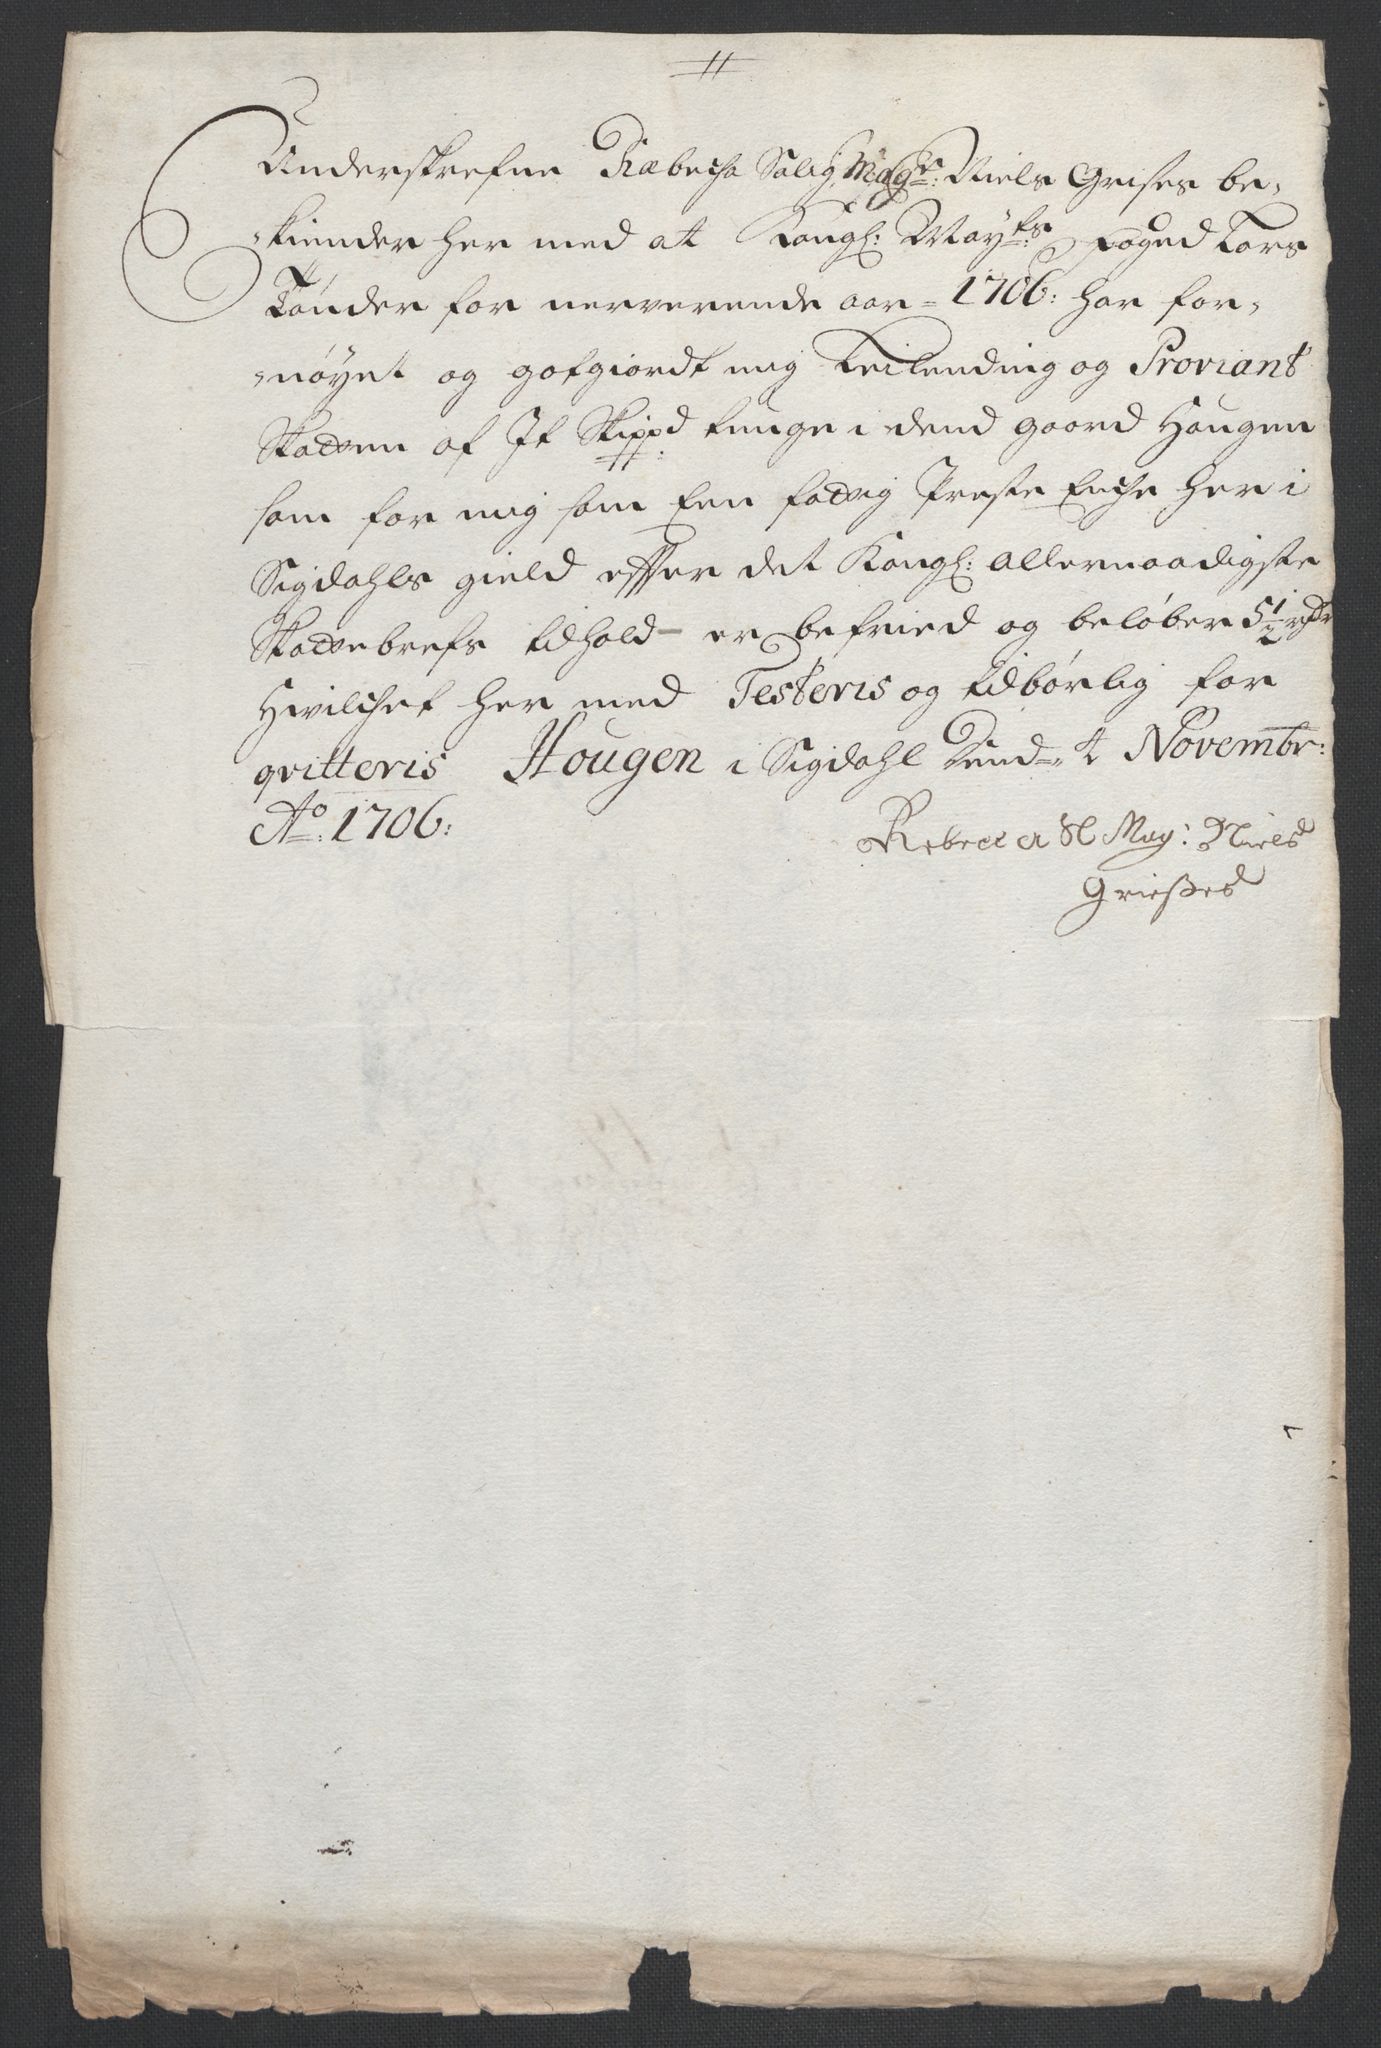 11
Underskrefne Ræbecha Salig Magr: Niels Grises be-
-kiender her med at Kongl: Mayts foged Lars
Tønder for nerverende aar - 1706: har for-
-nøyet og gotgiordt mig Leilending og Proviant
Skatten af It Skippd tunge i dend gaard Haugen
som for mig som Een fattig Preste Enche her i
Sigdahls gield effter det Kongl: allernaadigste
Skattebrefs tilhold - er befried og beløber 5 1/2 rdr
Hvilchet her med Testeris og tilbørlig for
qvitteris Hougen i Sigdahl Novembr:
Ao: 1706:
Rebecca Sl May: Niels
Grießes